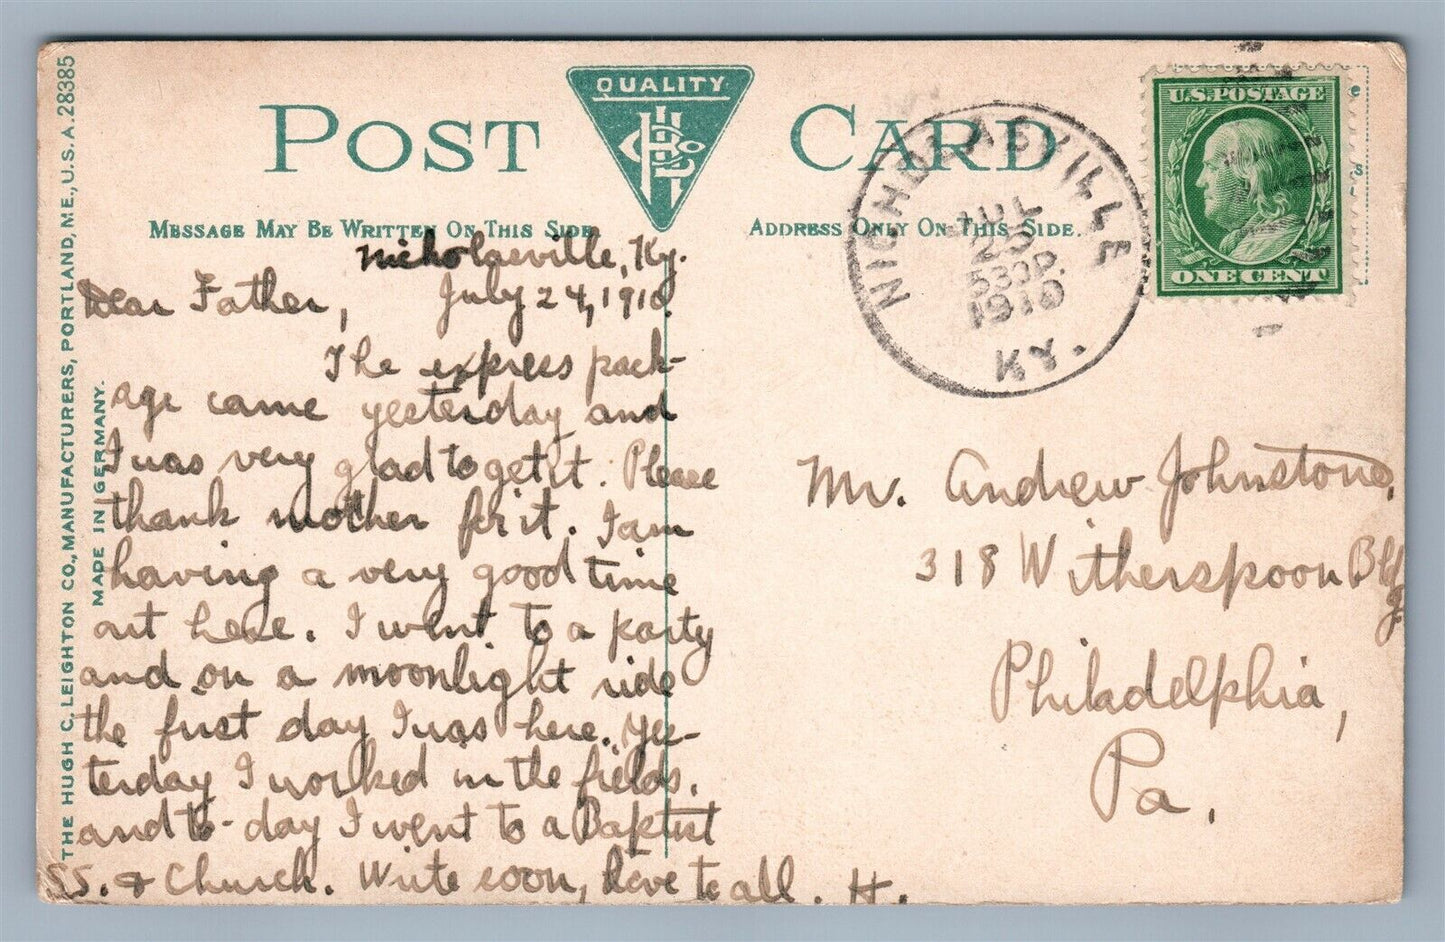 QUALITY
POST CARD
MESSAGE MAY BE WRITTEN ON THIS SIDE.
ADDRESS ONLY ON THIS SIDE.
THE HUGH C. LEIGHTON CO., MANUFACTURERS, PORTLAND, ME., U.S.A. 28385
MADE IN GERMANY.
NICHOLASVILLE
JUL
25
530P.
1910
KY.
U.S. POSTAGE
ONE CENT
Nicholasville, Ky.
Dear Father, July 24, 1910.
The express pack-
age came yesterday and
I was very glad to get it. Please
thank mother for it. I am
having a very good time
out here. I went to a party
and on a moonlight ride
the first day I was here. Yes-
terday I worked in the fields.
and to-day I went to a Baptist
S.S. & Church. Write soon, love to all. H.
Mr. Andrew Johnstone,
318 Witherspoon Bldg
Philadelphia,
Pa.